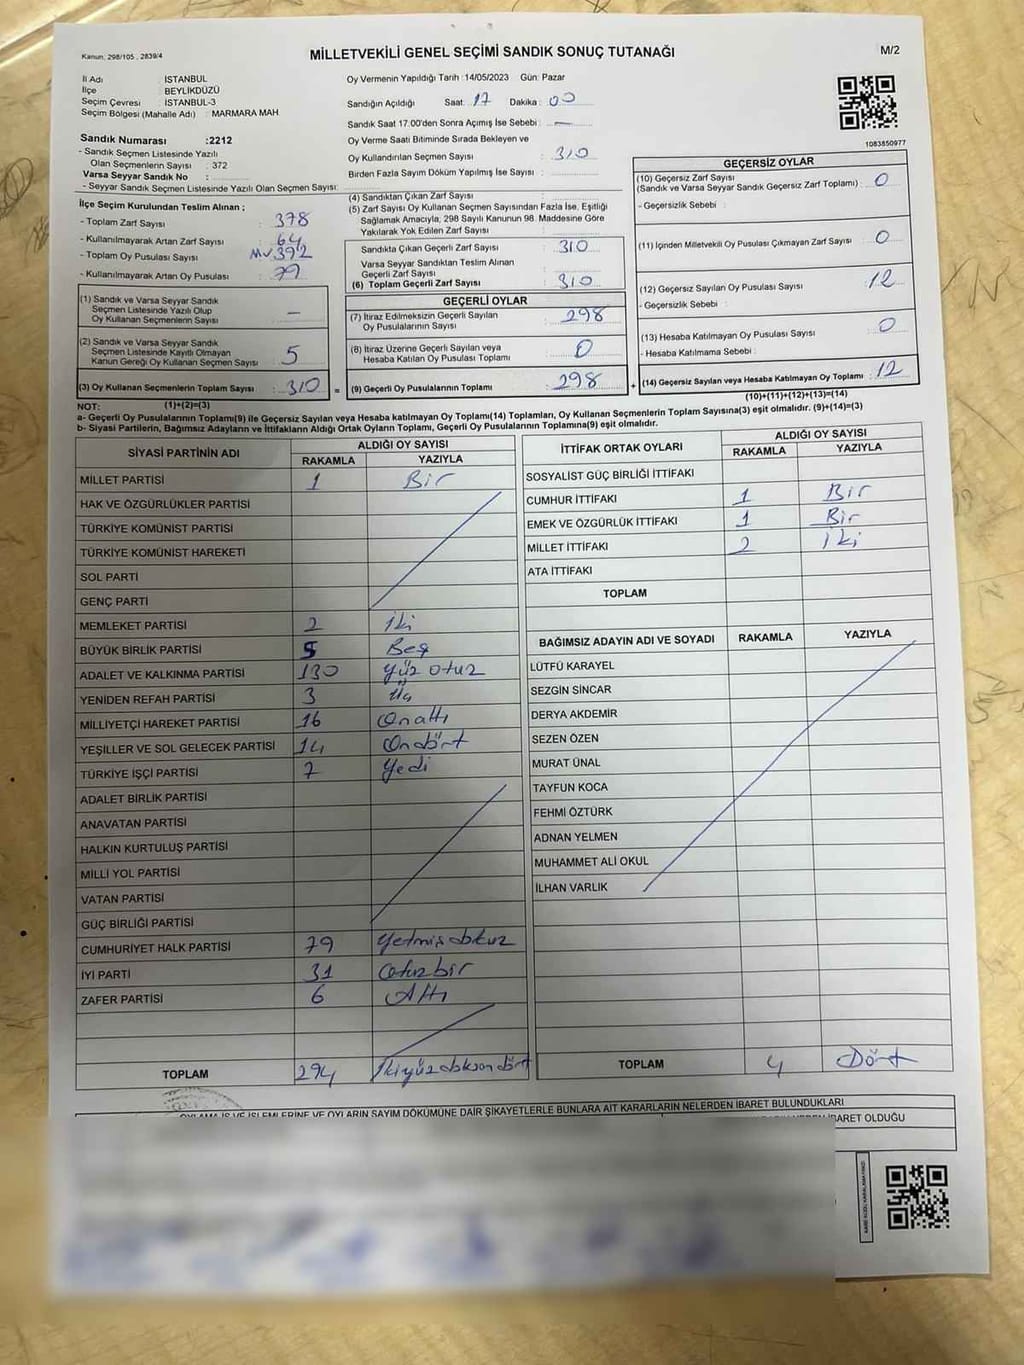 Kanun; 298/105 , 2839/4
MİLLETVEKİLİ GENEL SEÇİMİ SANDIK SONUÇ TUTANAĞI
M/2
İl Adı : İSTANBUL
İlçe : BEYLİKDÜZÜ
Seçim Çevresi : İSTANBUL-3
Seçim Bölgesi (Mahalle Adı) : MARMARA MAH
Sandık Numarası :2212
- Sandık Seçmen Listesinde Yazılı
Olan Seçmenlerin Sayısı : 372
Varsa Seyyar Sandık No :
- Seyyar Sandık Seçmen Listesinde Yazılı Olan Seçmen Sayısı:
Oy Vermenin Yapıldığı Tarih :14/05/2023 Gün: Pazar
Sandığın Açıldığı Saat: 17 Dakika : 00
Sandık Saat 17.00'den Sonra Açımış İse Sebebi : —
Oy Verme Saati Bitiminde Sırada Bekleyen ve
Oy Kullandırılan Seçmen Sayısı : 310
Birden Fazla Sayım Döküm Yapılmış İse Sayısı :
1083850977
İlçe Seçim Kurulundan Teslim Alınan ;
- Toplam Zarf Sayısı : 378
- Kullanılmayarak Artan Zarf Sayısı : 64
- Toplam Oy Pusulası Sayısı : MV.392
- Kullanılmayarak Artan Oy Pusulası : 79
(1) Sandık ve Varsa Seyyar Sandık
Seçmen Listesinde Yazılı Olup
Oy Kullanan Seçmenlerin Sayısı : —
(2) Sandık ve Varsa Seyyar Sandık
Seçmen Listesinde Kayıtlı Olmayan
Kanun Gereği Oy Kullanan Seçmen Sayısı : 5
(3) Oy Kullanan Seçmenlerin Toplam Sayısı : 310 =
(1)+(2)=(3)
(4) Sandıktan Çıkan Zarf Sayısı :
(5) Zarf Sayısı Oy Kullanan Seçmen Sayısından Fazla İse, Eşitliği
Sağlamak Amacıyla, 298 Sayılı Kanunun 98. Maddesine Göre
Yakılarak Yok Edilen Zarf Sayısı :
Sandıkta Çıkan Geçerli Zarf Sayısı : 310
Varsa Seyyar Sandıktan Teslim Alınan
Geçerli Zarf Sayısı :
(6) Toplam Geçerli Zarf Sayısı : 310
GEÇERLİ OYLAR
(7) İtiraz Edilmeksizin Geçerli Sayılan
Oy Pusulalarının Sayısı : 298
(8) İtiraz Üzerine Geçerli Sayılan veya
Hesaba Katılan Oy Pusulası Toplamı : 0
(9) Geçerli Oy Pusulalarının Toplamı : 298 +
GEÇERSİZ OYLAR
(10) Geçersiz Zarf Sayısı
(Sandık ve Varsa Seyyar Sandık Geçersiz Zarf Toplamı) : 0
- Geçersizlik Sebebi :
(11) İçinden Milletvekili Oy Pusulası Çıkmayan Zarf Sayısı : 0
(12) Geçersiz Sayılan Oy Pusulası Sayısı : 12
- Geçersizlik Sebebi :
(13) Hesaba Katılmayan Oy Pusulası Sayısı : 0
- Hesaba Katılmama Sebebi :
(14) Geçersiz Sayılan veya Hesaba Katılmayan Oy Toplamı : 12
(10)+(11)+(12)+(13)=(14)
NOT:
a- Geçerli Oy Pusulalarının Toplamı(9) ile Geçersiz Sayılan veya Hesaba katılmayan Oy Toplamı(14) Toplamları, Oy Kullanan Seçmenlerin Toplam Sayısına(3) eşit olmalıdır. (9)+(14)=(3)
b- Siyasi Partilerin, Bağımsız Adayların ve İttifakların Aldığı Ortak Oyların Toplamı, Geçerli Oy Pusulalarının Toplamına(9) eşit olmalıdır.
SİYASİ PARTİNİN ADI
ALDIĞI OY SAYISI
RAKAMLA YAZIYLA
MİLLET PARTİSİ 1 Bir
HAK VE ÖZGÜRLÜKLER PARTİSİ
TÜRKİYE KOMÜNİST PARTİSİ
TÜRKİYE KOMÜNİST HAREKETİ
SOL PARTİ
GENÇ PARTİ
MEMLEKET PARTİSİ 2 İki
BÜYÜK BİRLİK PARTİSİ 5 Beş
ADALET VE KALKINMA PARTİSİ 130 Yüz otuz
YENİDEN REFAH PARTİSİ 3 Üç
MİLLİYETÇİ HAREKET PARTİSİ 16 Onaltı
YEŞİLLER VE SOL GELECEK PARTİSİ 14 Ondört
TÜRKİYE İŞÇİ PARTİSİ 7 Yedi
ADALET BİRLİK PARTİSİ
ANAVATAN PARTİSİ
HALKIN KURTULUŞ PARTİSİ
MİLLİ YOL PARTİSİ
VATAN PARTİSİ
GÜÇ BİRLİĞİ PARTİSİ
CUMHURİYET HALK PARTİSİ 79 Yetmişdokuz
İYİ PARTİ 31 Otuzbir
ZAFER PARTİSİ 6 Altı
TOPLAM 294 İkiyüzdoksandört
İTTİFAK ORTAK OYLARI
ALDIĞI OY SAYISI
RAKAMLA YAZIYLA
SOSYALİST GÜÇ BİRLİĞİ İTTİFAKI
CUMHUR İTTİFAKI 1 Bir
EMEK VE ÖZGÜRLÜK İTTİFAKI 1 Bir
MİLLET İTTİFAKI 2 İki
ATA İTTİFAKI
TOPLAM
BAĞIMSIZ ADAYIN ADI VE SOYADI RAKAMLA YAZIYLA
LÜTFÜ KARAYEL
SEZGİN SİNCAR
DERYA AKDEMİR
SEZEN ÖZEN
MURAT ÜNAL
TAYFUN KOCA
FEHMİ ÖZTÜRK
ADNAN YELMEN
MUHAMMET ALİ OKUL
İLHAN VARLIK
TOPLAM 4 Dört
OYLAMA İŞ VE İŞLEMLERİNE VE OYLARIN SAYIM DÖKÜMÜNE DAİR ŞİKAYETLERLE BUNLARA AİT KARARLARIN NELERDEN İBARET BULUNDUKLARI
İBARET OLDUĞU